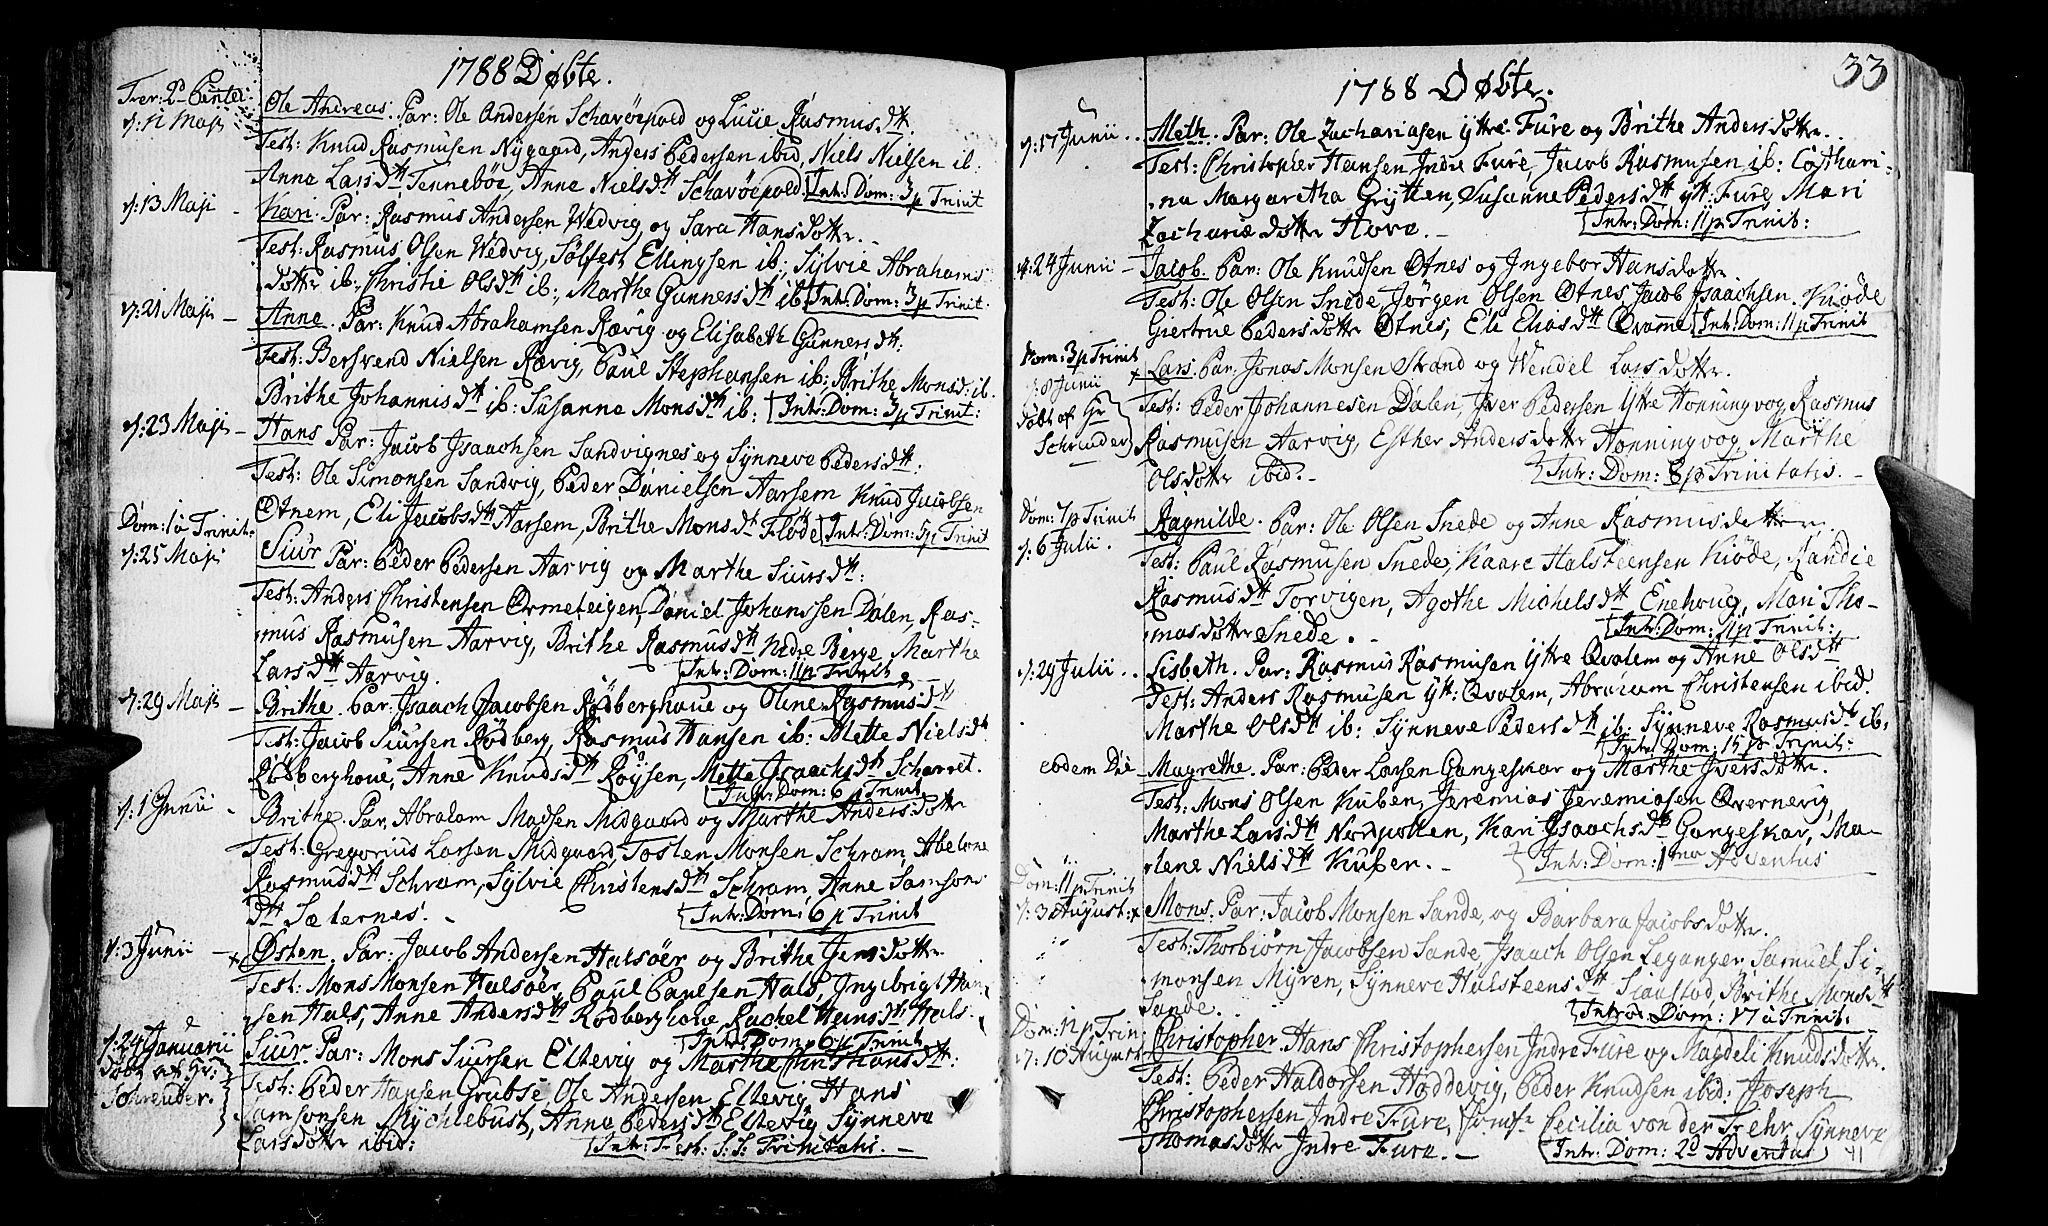 1788 Døbte.
Fer: 2da Pentec:
d: 12 Maji
Ole Andreas. Par: Ole Andersen Schavøepold og Lucie Rasmusdtt:
Test: Knud Rasmusen Nygaard, Anders Pedersen ibid, Niels Nielsen ib:
Anna Larsdtt Tennebøe, Anne Nielsdtt Schavöepold. Intr: Dom: 3 p Trinit
d: 13 Maji -
Kari. Par: Rasmus Andersen Wedvig, og Sara Hansdotter.
Test: Rasmus Olsen Wedvig, Sölfest Ellingsen ib: Sÿlvie Abrahams
dotter ib:, Christie Olsdtt ib:, Marthe Gunnersdtt ib. Intr: Dom: 3 p Trinit.
d: 21 Maji -
Anne. Par: Knud Abrahamsen Rævig og Elisabeth Gunnersdtt:
Test: Bersvend Nielsen Rævig, Paul Stephansen ib: Brithe Monsd. ib.
Brithe Johannisdtt ib: Susanna Monsdtt ib: Intr: Dom: 3 p Trinit:
d: 23 Maji -
Hans Par: Jacob Isaachsen Sandvignes og Sÿnneve Pedersdtt:
Test: Ole Simonsen Sandvig, Peder Danielsen Aarsem Knud Jacobsen
Otnem, Eli Jacobsdtt Aarsem, Brithe Monsdtt Flöde Intr: Dom: 5 p Trinit
Dom: 1 a Trinit.
d: 25 Maji
Siur Par: Peder Pedersen Aarvig og Marthe Siursdtt:
Test: Anders Christensen Ormeteigen, Daniel Johanssen Dalen, Ras-
mus Rasmusen Aarvig, Brithe Rasmusdtt Nedre Berge Marthe
Larsdtt Aarvig. Intr: Dom: 11 p Trinit
d: 29 Maji -
Brithe. Par. Isaach Jacobsen Rödberghoue og Oline Rasmusdtt
Test: Jacob Siursen Rödberg, Rasmus Hansen ib: Mette Nielsdtt
Rödberghoue, Anne Knudsdtt Röysen, Mette Isaachsdtt Scharvet.
Intr: Dom: 6 p Trinit
d: 1 Junii -
Brithe. Par. Abraham Madsen Midgaard og Marthe Andersdotter
Test: Gregorius Larsen Midgaard, Tosten Monsen Schram, Abelone
Rasmusdtt Schram, Sÿlvie Christensdtt Schram, Anne Samsons
dtt Sæternes. - Intr: Dom: 6 p Trinit
d: 3 Junii - x
Østen. Par: Jacob Andersen Halsöer og Brithe Jensdotter
Test: Mons Monsen Halsöer, Paul Paulsen Hals, Ingibrigt Han-
sen Hals, Anne Andersdtt Rödberghoue Rachel Hansdtt Hals
Intr: Dom: 6 p Trinit
d: 24 Januarii
Döbt af Hr:
Schreuder.
Siur Par: Mons Siursen Eltevig og Marthe Christiansdtt:
Test: Peder Hansen Grubse, Ole Andersen Eltevig Hans
Samsonsen Mychlebust, Anna Pedersdtt Eltevig Sÿnneve
Larsdotter ibid: Intr: Fest: S: S: Trinitatis. -
33
1788 Døbte.
d: 17 Junii . .
Meth. Par: Ole Zachariasen Yttre Fure og Brithe Andersdotter.
Test: Christopher Hansen Indre Fure, Jacob Rasmusen ib: Cathari-
na Margaretha Grÿtten, Susanne Pedersdtt ÿtt: Fure Mari
Zachariædotter Hove. - Intr: Dom: 11 p Trinit:
d: 24 Junii -
Jacob. Par: Ole Knudsen Otnes og Ingebor Hansdotter
Test: Ole Olsen Snede, Jörgen Olsen Otnes Jacob Isaachsen Kiöde
Giertrue Pedersdotter Otnes, Eli Eliasdtt Qvamme Intr: Dom: 11 p Trinit
Dom: 3 p Trinit
d: 8 Junii x
Döbt af Hr
Schreuder
Lars. Par. Jonas Monsen Strand og Wendel Larsdotter.
Test: Peder Johannesen Dalen, Iver Pedersen Yttre Honningvog Rasmus
Rasmusen Aarvig, Esther Andersdotter Honningvog, Marthe
Olsdotter ibid. - Intr: Dom: 8 p Trinitatis. -
Dom: 7 p Trinit
d: 6 Julii.
Ragnilde. Par: Ole Olsen Snede og Anne Rasmusdotter.
Test: Paul Rasmusen Snede, Kaare Halsteensen Kiöde, Randie
Rasmusdtt Torvigen, Agothe Michelsdtt Enehoug, Mari Tho-
masdotter Snede. - Intr: Dom: 11 p Trinit:
d: 29 Julii . .
Lisbeth. Par: Rasmus Rasmusen Yttre Qvalem og Anne Olsdtt
Test: Anders Rasmusen Ytt: Qvalem, Abraham Christensen ibid.
Marthe Olsdtt ib: Sÿnneve Pedersdtt ib: Sÿnneve Rasmusdtt ib,
Intr: Dom: 15 p Trinit:
eodem Die -
Magrethe. Par: Peder Larsen Gangeskar og Marthe Iversdotter.
Test: Mons Olsen Kuben, Jeremias Jeremiasen Overnevig,
Marthe Larsdtt Nordpollen, Kari Isaachsdtt Gangeskar, Ma-
lene Nielsdtt Kuben. - Intr: Dom: 1ma Adventus
Dom: 11 p Trinit
d: 3 August: x
Mons. Par: Jacob Monsen Sande, og Barbara Jacobsdotter.
Test: Thorbiörn Jacobsen Sande, Isaach Olsen Leganger, Samuel Si-
monsen Myren, Sÿnneve Halsteensdtt Siaastad, Brithe Monsdtt
Sande. Introd: Dom: 17 a Trinit:
Dom: 12 p Trin:
d: 10 August
Christopher. Hans Christophersen Indre Fure og Magdeli Knudsdotter.
Test: Peder Haldorsen Hoddevig, Peder Knudsen ibid: Joseph
Christophersen Indre Fure, Jomf: Cecilia von der Fehr Sÿnneve
Thomasdotter Indre Fure. - Intr: Dom: 2d Adventus
41